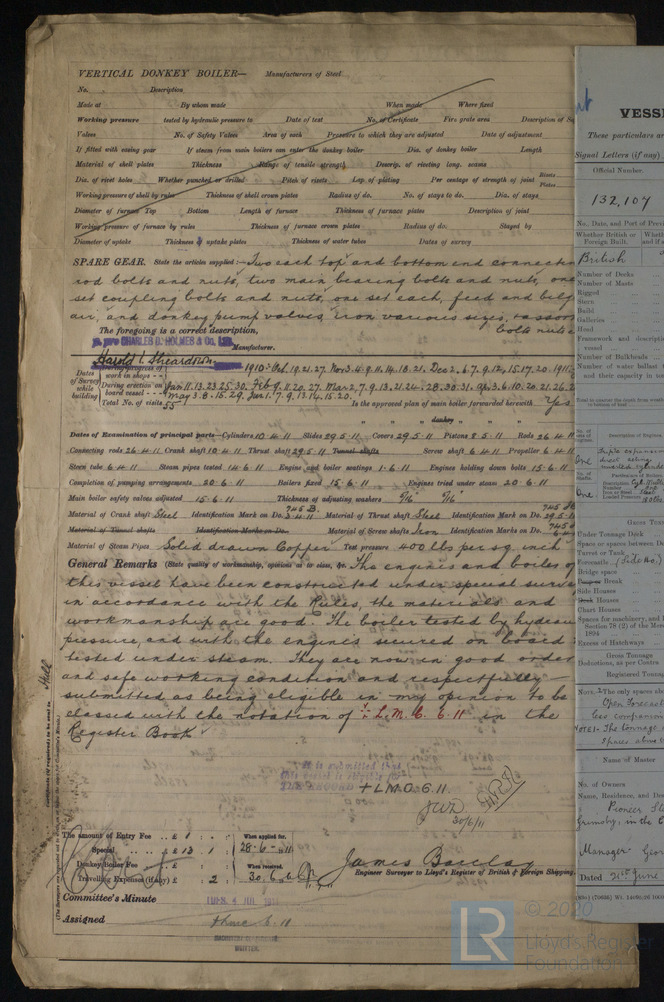 VERTICAL DONKEY BOILER— Manufacturers of Steel
No. Description
Made at By whom made When made Where fixed
Working pressure tested by hydraulic pressure to Date of test No. of Certificate Fire grate area Description of
Valves No. of Safety Valves Area of each Pressure to which they are adjusted Date of adjustment
If fitted with easing gear If steam from main boilers can enter the donkey boiler Dia. of donkey boiler Length
Material of shell plates Thickness Range of tensile strength Descrip. of riveting long. seams
Dia. of rivet holes Whether punched or drilled Pitch of rivets Lap of plating Per centage of strength of joint Rivets Plates
Working pressure of shell by rules Thickness of shell crown plates Radius of do. No. of stays to do. Dia. of stays
Diameter of furnace Top Bottom Length of furnace Thickness of furnace plates Description of joint
Working pressure of furnace by rules Thickness of furnace crown plates Radius of do. Stayed by
Diameter of uptake Thickness of uptake plates Thickness of water tubes Dates of survey
SPARE GEAR. State the articles supplied:— Two each top and bottom end connecting
rod bolts and nuts, two main bearing bolts and nuts, one
set coupling bolts and nuts, one set each, feed and bilge
air, and donkey pump valves, iron various sizes, + assor
bolts nuts &
The foregoing is a correct description,
CHARLES D. HOLMES & Co. Ltd.
Harold L. Sheardson Manufacturer.
Dates of Survey while building
During progress of work in shops - - 1910:- Oct. 19. 21. 27. Nov. 3. 4. 9. 11. 14. 18. 21. Dec. 2. 6. 7. 9. 12. 15. 17. 20. 1911
During erection on board vessel - - - Jan. 11. 13. 23. 25. 30. Feb. 9. 11. 20. 27. Mar. 2. 7. 9. 13. 21. 24. 28. 30. 31. Ap. 3. 6. 10. 20. 21. 26. 2
May 3. 8. 15. 29. Jun. 1. 7. 9. 13. 14. 15. 20.
Total No. of visits 55 Is the approved plan of main boiler forwarded herewith Yes
" " " donkey " " "
Dates of Examination of principal parts—Cylinders 10.4.11 Slides 29.5.11 Covers 29.5.11 Pistons 8.5.11 Rods 26.4.11
Connecting rods 26.4.11 Crank shaft 10.4.11 Thrust shaft 29.5.11 Tunnel shafts Screw shaft 6.4.11 Propeller 6.4.11
Stern tube 6.4.11 Steam pipes tested 14.6.11 Engine and boiler seatings 1.6.11 Engines holding down bolts 15.6.11
Completion of pumping arrangements 20.6.11 Boilers fixed 15.6.11 Engines tried under steam 20.6.11
Main boiler safety valves adjusted 15.6.11 Thickness of adjusting washers 9/16" 9/16"
Material of Crank shaft Steel Identification Mark on Do. 745 B. 3.4.11 Material of Thrust shaft Steel Identification Mark on Do. 745 29.5.
Material of Tunnel shafts Identification Marks on Do. Material of Screw shafts Iron Identification Marks on Do. 745
Material of Steam Pipes Solid drawn Copper Test pressure 400 lbs per sq. inch
General Remarks (State quality of workmanship, opinions as to class, &c. The engines and boiler of
this vessel have been constructed under special surve
in accordance with the Rules, the materials and
workmanship are good. The boiler tested by hydrau
pressure, and with the engines secured on board
tested under steam. They are now in good order
and safe working condition and respectfully
submitted as being eligible in my opinion to be
classed with the notation of + L.M.C. 6.11 in the
Register Book
It is submitted that
this vessel is eligible for
THE RECORD + L.M.C. 6.11.
30/6/11
Hull
The amount of Entry Fee .. £ 1 : : When applied for.
Special .. .. £ 13 : 1 : 28-6-11
Donkey Boiler Fee .. .. £ : : When received.
Travelling Expenses (if any) £ : 2 : 30.6.11
James Barclay
Engineer Surveyor to Lloyd's Register of British & Foreign Shipping.
Committee's Minute TUES. 4 JUL 1911
Assigned + L.M.C. 6.11
WRITTEN.
VESS
These particulars ar
Signal Letters (if any)
Official Number.
132,107
No., Date, and Port of
Whether British or Foreign Built.
British
Number of Decks
Number of Masts
Rigged
Stern
Build
Galleries
Head
Framework and
vessel
Number of Bulkheads
Number of water ballast
and their capacity in
Description of Engines
One
One
GROSS
Under Tonnage Deck
Space or spaces between
Turret or Trunk
Forecastle
Bridge space
Break
Side Houses
Deck Houses
Chart Houses
Spaces for machinery, and
Section 78 (2) of the
1894
Excess of Hatchways
Gross Tonnage
Deductions, as per Contra
Registered Tonnage
Open Forecast
NOTE 1.- The tonnage
Spaces above
Name of Master
No. of Owners
Name, Residence, and
Pioneer St
Grimsby, in the C
Manager Geor
Dated 21st June
LR
© 2020
Lloyd's Register
Foundation